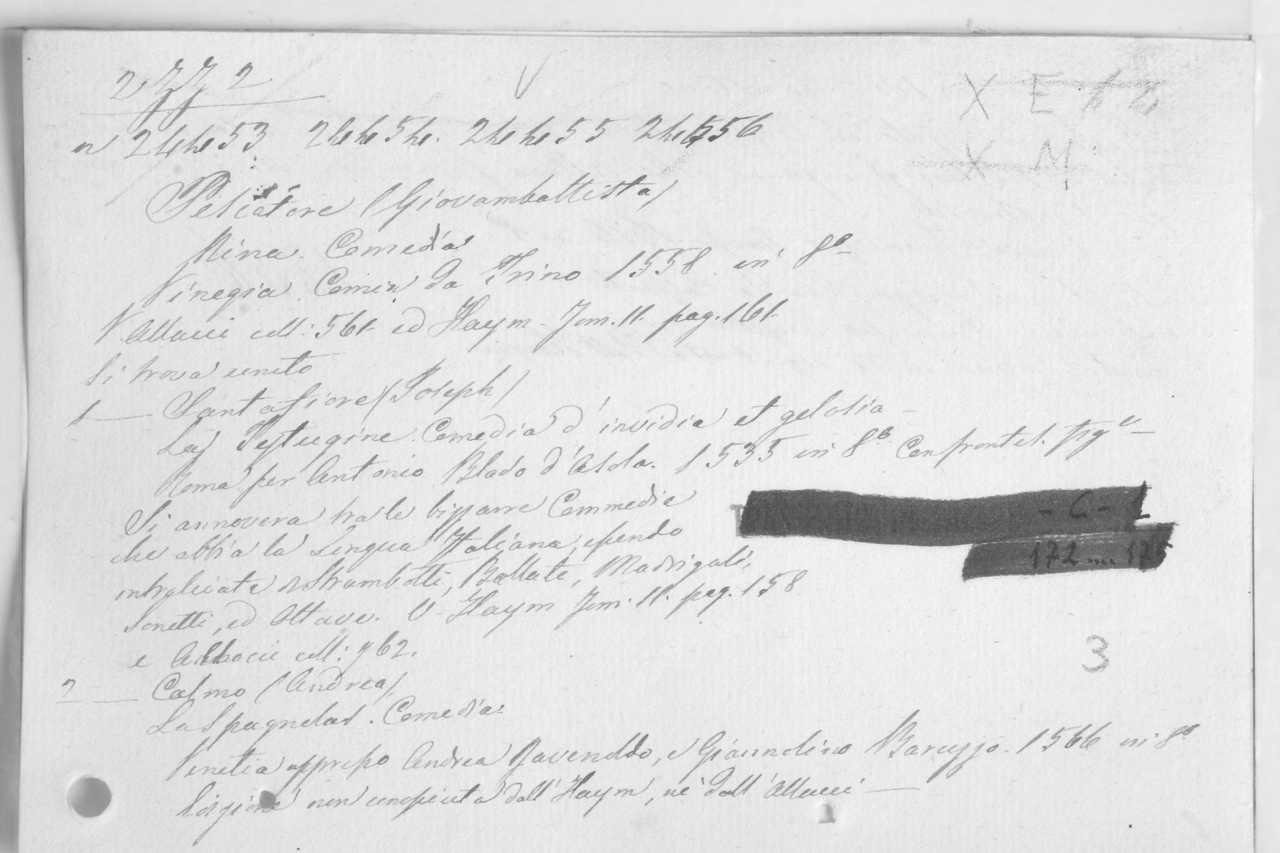 2772
V
X E
X M
n 24453 24454. 24455 24556
Pescatore (Giovambattista)
Nina. Comedia
Vinegia. Comin da Trino 1558. in 8º
V. Allacci coll: 561. ed Haym. Tom. II. pag. 161.
Si trova unito
1 — Santafiore (Joseph)
La Testugine. Comedia d'invidia et gelosia —
Roma per Antonio Blado d'Asola. 1535 in 8º Con frontes. fig.
Si annovera tra le bizzarre Commedie
che abbia la Lingua Italiana, essendo
intralciate Strambotti, Ballate, Madrigali,
Sonetti, ed Ottave. V. Haym Tom. II. pag. 158
e Allacci coll: 762.
- C -
172 175
3
2 — Calmo (Andrea)
La Spagnolas. Comedia
Venetia appresso Andrea Ravenoldo, e Giannolino Baruzzo. 1566 in 8º
non conosciuta dall'Haym, nè dall'Allacci —